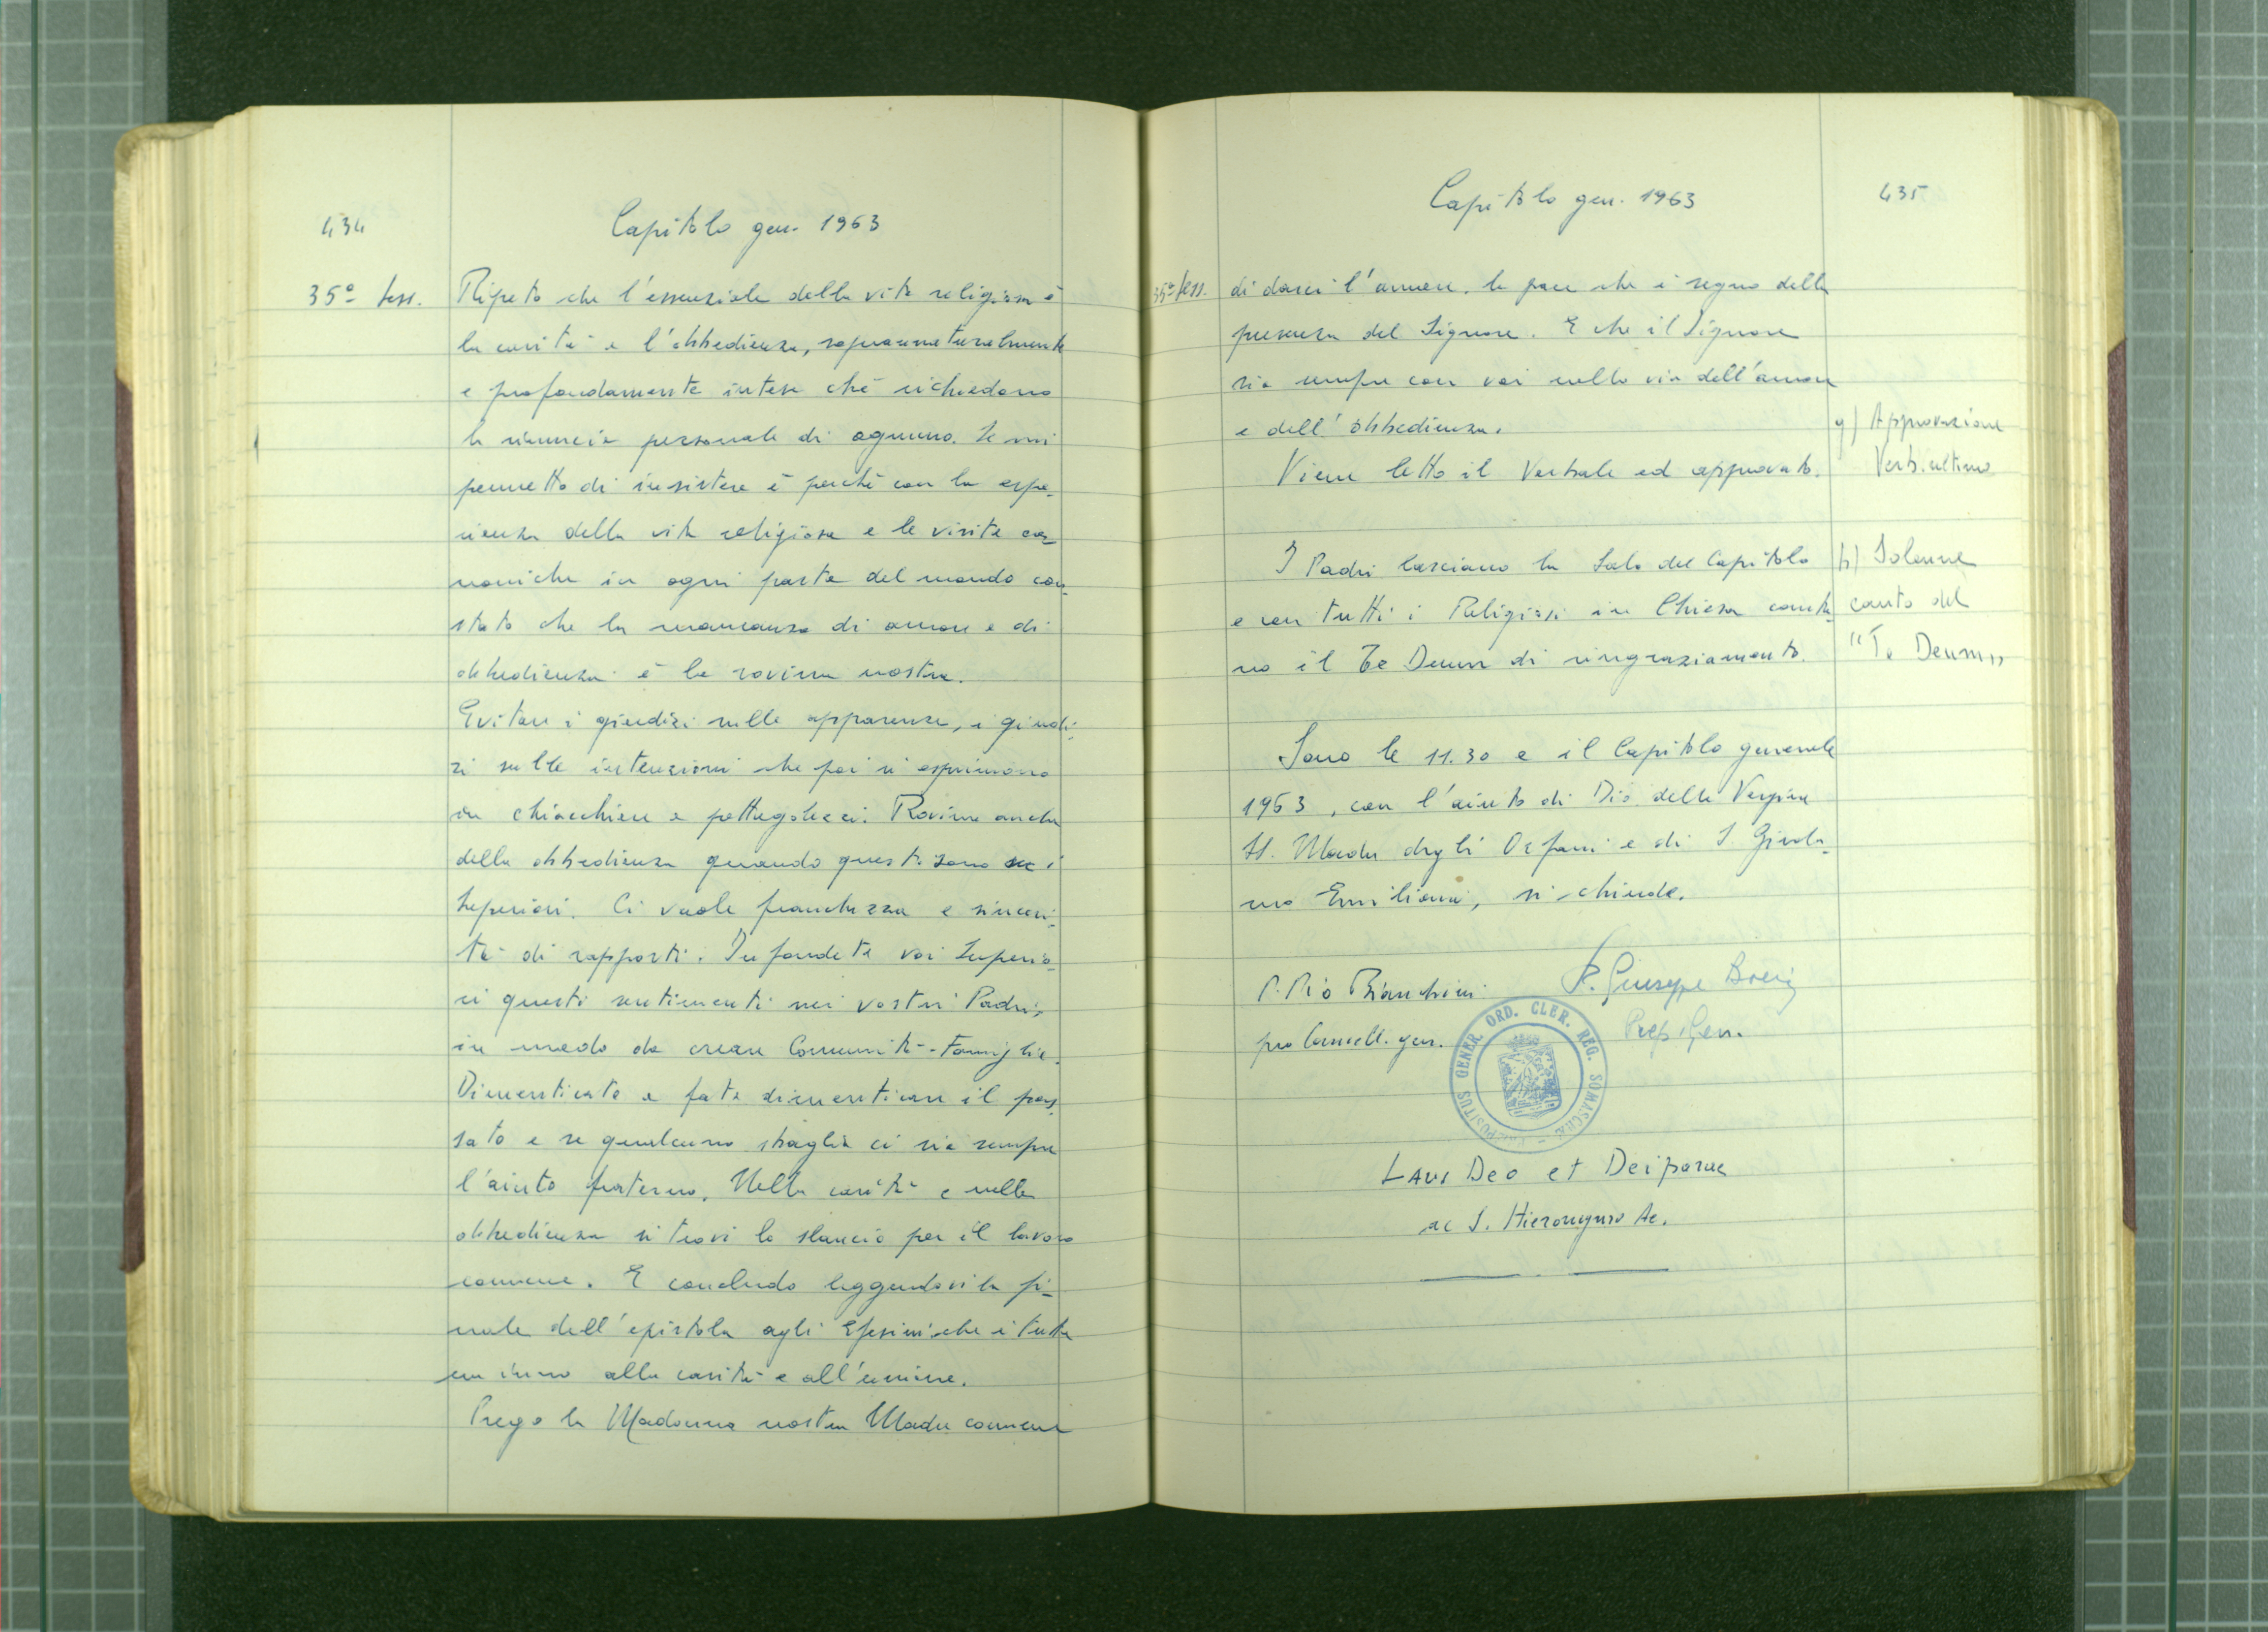 434
Capitolo gen. 1963
35º sess.
Ripeto che l'essenziale della vita religiosa è
la carità e l'obbedienza, soprannaturalmente
e profondamente intese che richiedono
la rinuncia personale di ognuno. Se mi
permetto di insistere è perché con la espe-
rienza della vita religiosa e le visite ca-
noniche in ogni parte del mondo con-
stato che la mancanza di amore e di
obbedienza è la rovina nostra.
Evitare i giudizi sulle apparenze, i giudi-
zi sulle intenzioni che poi si esprimono
in chiacchiere e pettegolezzi. Rovina anche
della obbedienza quando questi sono i
Superiori. Ci vuole franchezza e sinceri-
tà di rapporti. Infondete voi Superio-
ri questi sentimenti nei vostri Padri,
in modo da creare Comunità-Famiglia.
Dimenticate e fate dimenticare il pas-
sato e se qualcuno sbaglia ci sia sempre
l'aiuto fraterno. Nella carità e nella
obbedienza si trovi lo slancio per il lavoro
comune. E concludo leggendovi la fi-
nale dell'epistola agli Efesini che è tutta
un inno alla carità e all'unione.
Prego la Madonna nostra Madre comune
Capitolo gen. 1963
435
35º sess.
di darci l'amore, la pace che è segno della
presenza del Signore. E che il Signore
sia sempre con voi nella via dell'amore
e dell'obbedienza.
g) Approvazione
Verb. ultimo
Viene letto il Verbale ed approvato.
I Padri lasciano la Sala del Capitolo
e con tutti i Religiosi in Chiesa canta-
no il Te Deum di ringraziamento.
h) Solenne
canto del
"Te Deum"
Sono le 11.30 e il Capitolo generale
1963, con l'aiuto di Dio della Vergine
SS. Madre degli Orfani e di S. Girola-
mo Emiliani, si chiude.
P. Pio Bianchini
pro Cancell. gen.
P. Giuseppe Boeris
Prep. Gen.
PRAEPOSITUS GENER. ORD. CLER. REG. SOMASCHAE
Laus Deo et Deiparae
ac S. Hieronymo Ae.